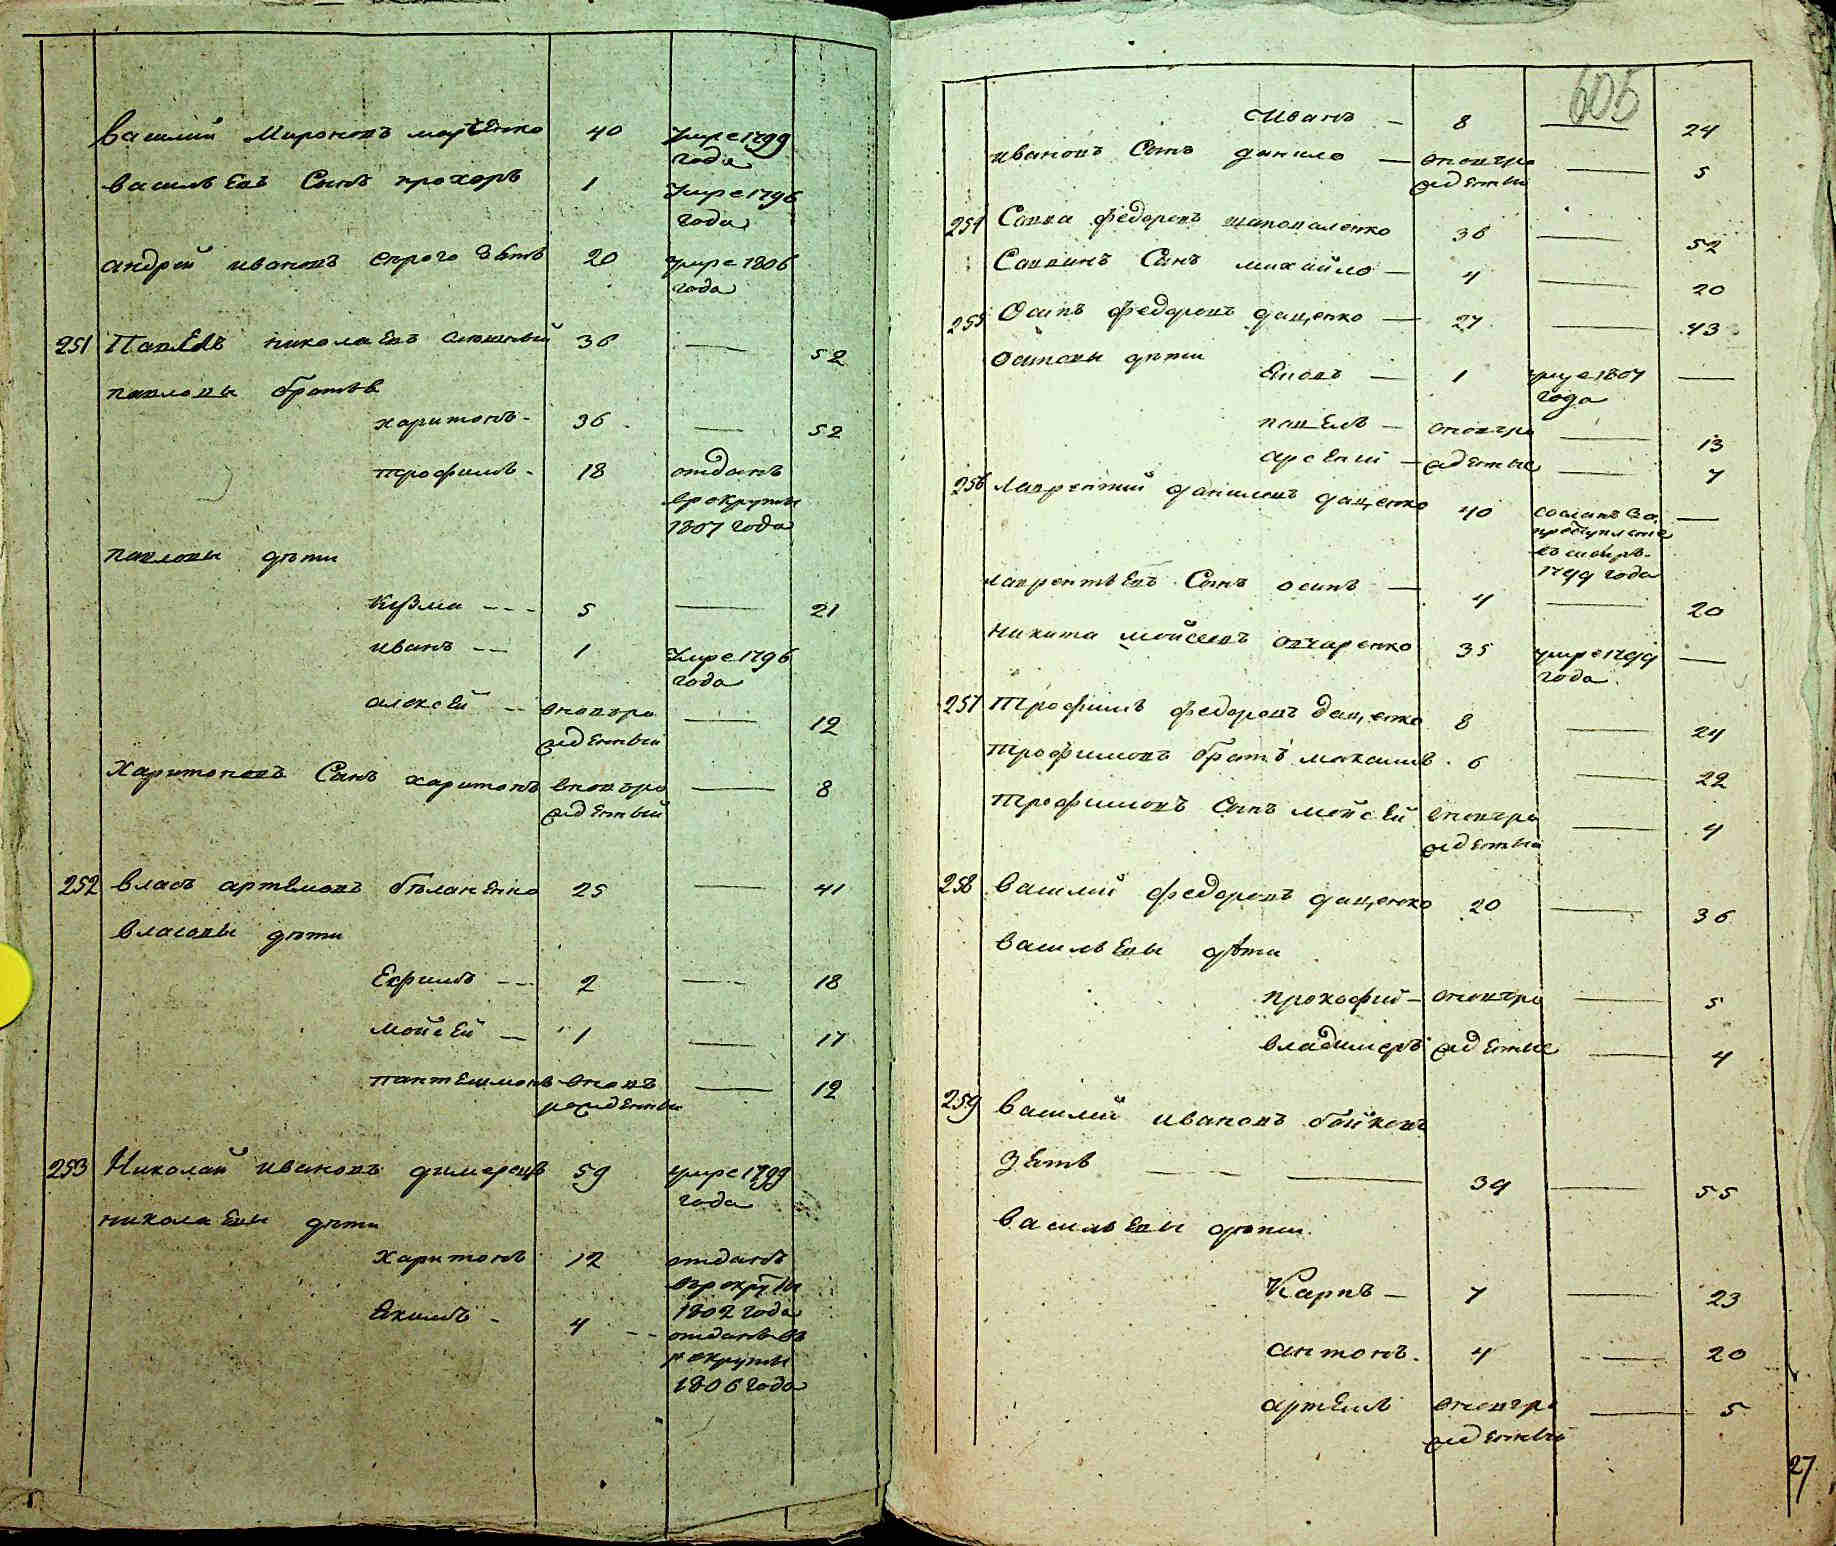 Василий Мироновъ марченко 40 Умре 1799
года
васильевъ Сынъ прохоръ 1 Умре 1796
года
андрей ивановъ 20 умре 1806
года
251 Павелъ николаевъ 36 — 52
павловы братья
харитонъ - 36 — 52
трофимъ - 18 отданъ
врекруты
1807 года
павловы дѣти
Кузма - - - 5 — 21
иванъ - - 1 Умре 1796
года
алексей - - вновьро — 12
жденный
Харитоновъ Сынъ харитонъ вновьро — 8
жденный
252 власъ артемовъ бѣланенко 25 — 41
власовы дѣти
Ефимъ - - - 2 — 18
мойсей — 1 — 17
пантелимонъ вновь — 12
рожденны
253 Николай ивановъ димерецъ 59 умре 1799
года
николаевы дѣти
харитонъ 12 отданъ
врекруты
1802 года
Екимъ - 4 - - отданъ въ
рекруты
1806 года
605
Иванъ — 8 — 24
ивановъ Сынъ данило — вновьро — 5
жденный
254 Савва федоровъ шаповаленко 36 — 52
Саввинъ Сынъ михайло — 4 — 20
255 Осипъ федоровъ даценко — 27 — 43
Осиповы дѣти
Яковъ — 1 умре 1807 —
года
павелъ — вновьро — 13
арсений — жденные — 7
256 Лаврентий даниловъ даценко 40 сосланъ за —
преступление
въ сибирь
1799 года
лаврентьевъ Сынъ осипъ — 4 — 20
Никита мойсеевъ овчаренко 35 умре 1799 —
года
257 Трофимъ федоровъ даценко 8 — 24
трофимовъ братъ максимъ 6 — 22
трофимовъ Сынъ мойсей вновьро — 4
жденный
258 Василий федоровъ даценко 20 — 36
васильевы дѣти
прокофий — вновьро — 5
владимеръ жденные — 4
259 Василий ивановъ бойковъ
зять — — — 39 — 55
васильевы дѣти
Карпъ — 7 — 23
антонъ. 4 — 20
артемъ вновьро — 5
жденный
27